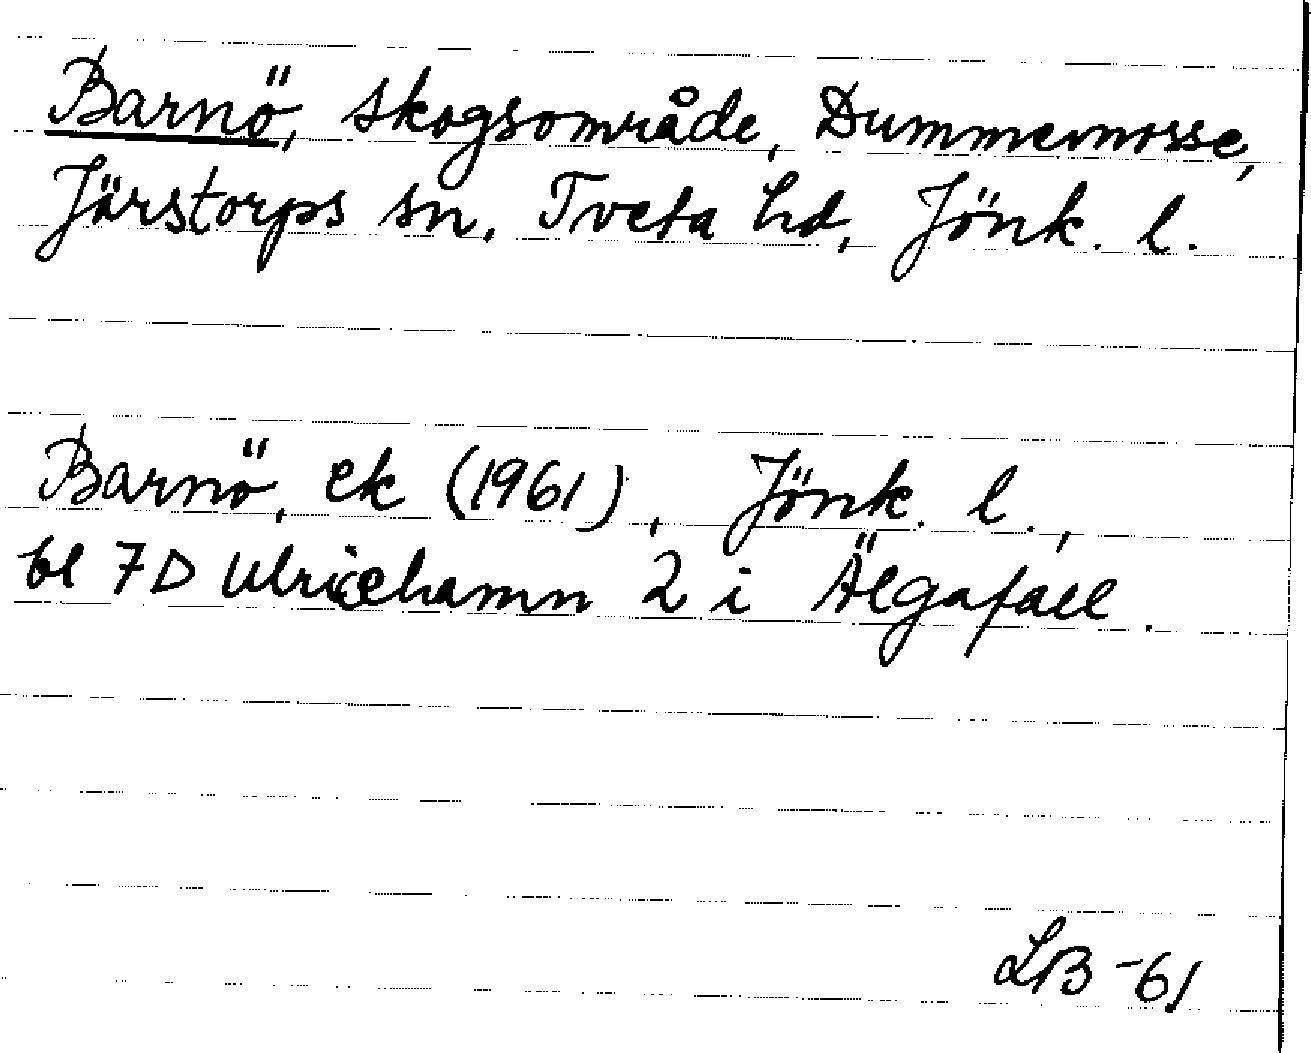 Barnö, skogsområde, Dummemosse,
Järstorps sn, Tveta hd, Jönk. l.
Barnö, ek (1961), Jönk. l.,
bl 7D Ulricehamn 2 i Älgafall.
LB -61